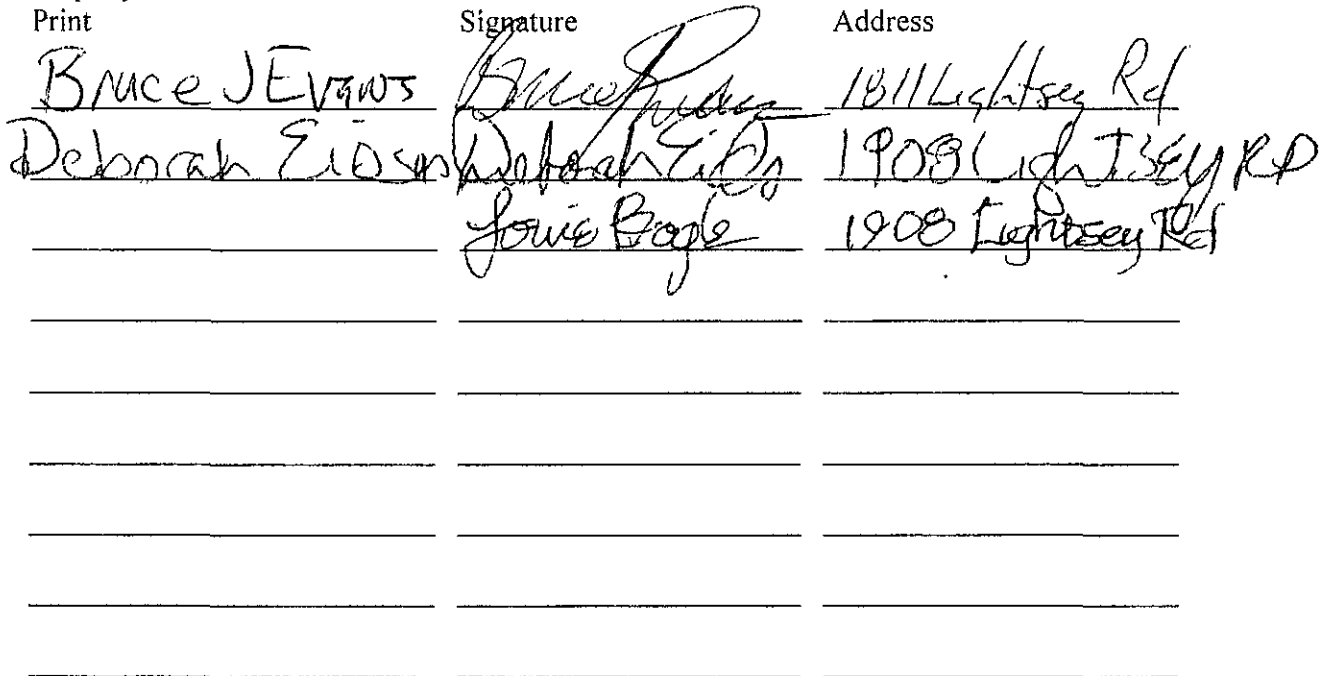 Print Signature Address
Bruce J Evans Bruce J Evans 1811 Lightsey Rd
Deborah Deborah 1908 Lightsey RD
Bogle 1908 Lightsey Rd